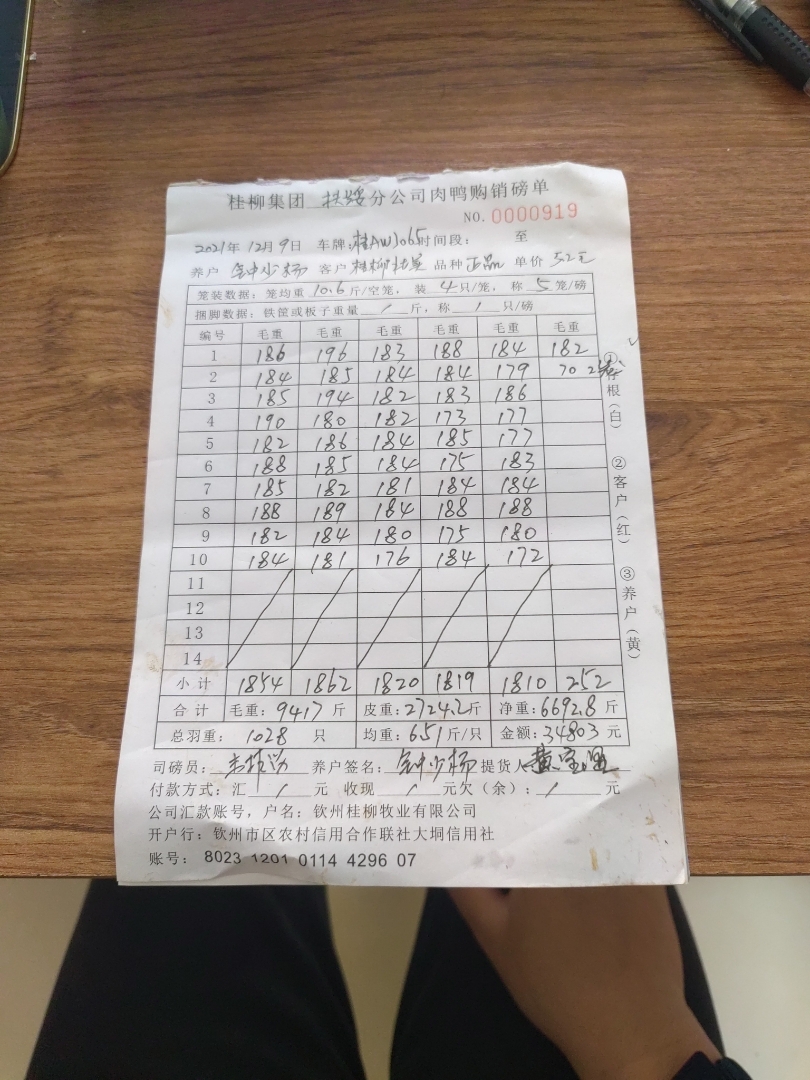 桂柳集团 扶绥 分公司肉鸭购销磅单
NO. 0000919
2021年 12月 9日 车牌:桂AW3065 时间段: 至
养户 客户 桂柳 品种 正品 单价 5.2元
笼装数据: 笼均重 10.6 斤/空笼, 装 4 只/笼, 称 5 笼/磅
捆脚数据: 铁筐或板子重量 / 斤, 称 / 只/磅
编号 毛重 毛重 毛重 毛重 毛重 毛重
1 186 196 183 188 184 182
2 184 185 184 184 179 70 2笼
3 185 194 182 183 186
4 190 180 182 173 177
5 182 186 184 185 177
6 188 185 184 175 183
7 185 182 181 184 184
8 188 189 184 188 188
9 182 184 180 175 180
10 184 181 176 184 172
11
12
13
14
小计 1854 1862 1820 1819 1810 252
合计 毛重: 9417 斤 皮重: 2724.2斤 净重: 6692.8 斤
总羽重: 1028 只 均重: 6.51斤/只 金额: 34803 元
司磅员: 养户签名: 提货人
付款方式: 汇 / 元 收现 / 元欠(余): / 元
公司汇款账号, 户名: 钦州桂柳牧业有限公司
开户行: 钦州市区农村信用合作联社大垌信用社
账号: 8023 1201 0114 4296 07
①存根(白)
②客户(红)
③养户(黄)